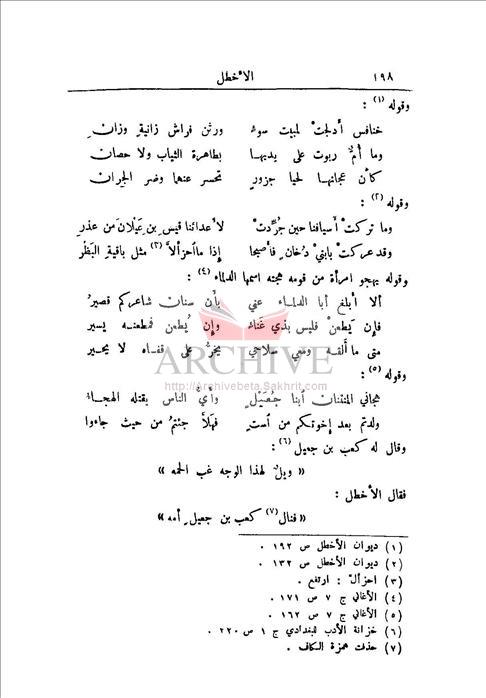 ١٩٨
الأخطل
وقوله (١) :
خنافس أدلجتْ لمبيت سوء ورثن فراش زانيةٍ وزانِ
وما أمٌّ ربوت على يديها بطاهرة الثياب ولا حصان
كأن عجانها لحيا جزورٍ تحسر عنها وضر الجران
وقوله (٢) :
وما تركتْ أسيافنا حين جُرّدتْ لأعدائنا قيس بن عَيْلان من عذرِ
وقد عركتْ بابنيْ دُخان فأصبحا إذا ما احزألاّ (٣) مثل باقية البَظْر
وقوله يهجو امرأة من قومه هجته اسمها الدلماء (٤) :
ألا أبلغ أبا الدلماء عني بأن سنان شاعركم قصيرُ
فإن يَطعنْ فليس بذي غَناء وإن يُطعن فمطعنه يسير
متى ما ألقه ومعي سلاحي يخرّ على قفاه لا يحير
وقوله (٥) :
هجاني المنتنان ابنا جُعَيْلٍ وأيُّ الناس يقتله الهجاءُ
ولدتم بعد إخوتكم من استٍ فهلاّ جئتمُ من حيث جاءوا
وقال له كعب بن جعيل (٦) :
« ويلٌ لهذا الوجه غب الحمه »
فقال الأخطل :
« فنال (٧) كعب بن جعيلٍ أمه »
(١) ديوان الأخطل ص ١٩٢ .
(٢) ديوان الأخطل ص ١٣٢ .
(٣) احزألّ : ارتفع .
(٤) الأغاني ج ٧ ص ١٧١ .
(٥) الأغاني ج ٧ ص ١٦٢ .
(٦) خزانة الأدب للبغدادي ج ١ ص ٢٢٠ .
(٧) حذفت همزة الكاف .
ARCHIVE
http://Archivebeta.Sakhrit.com